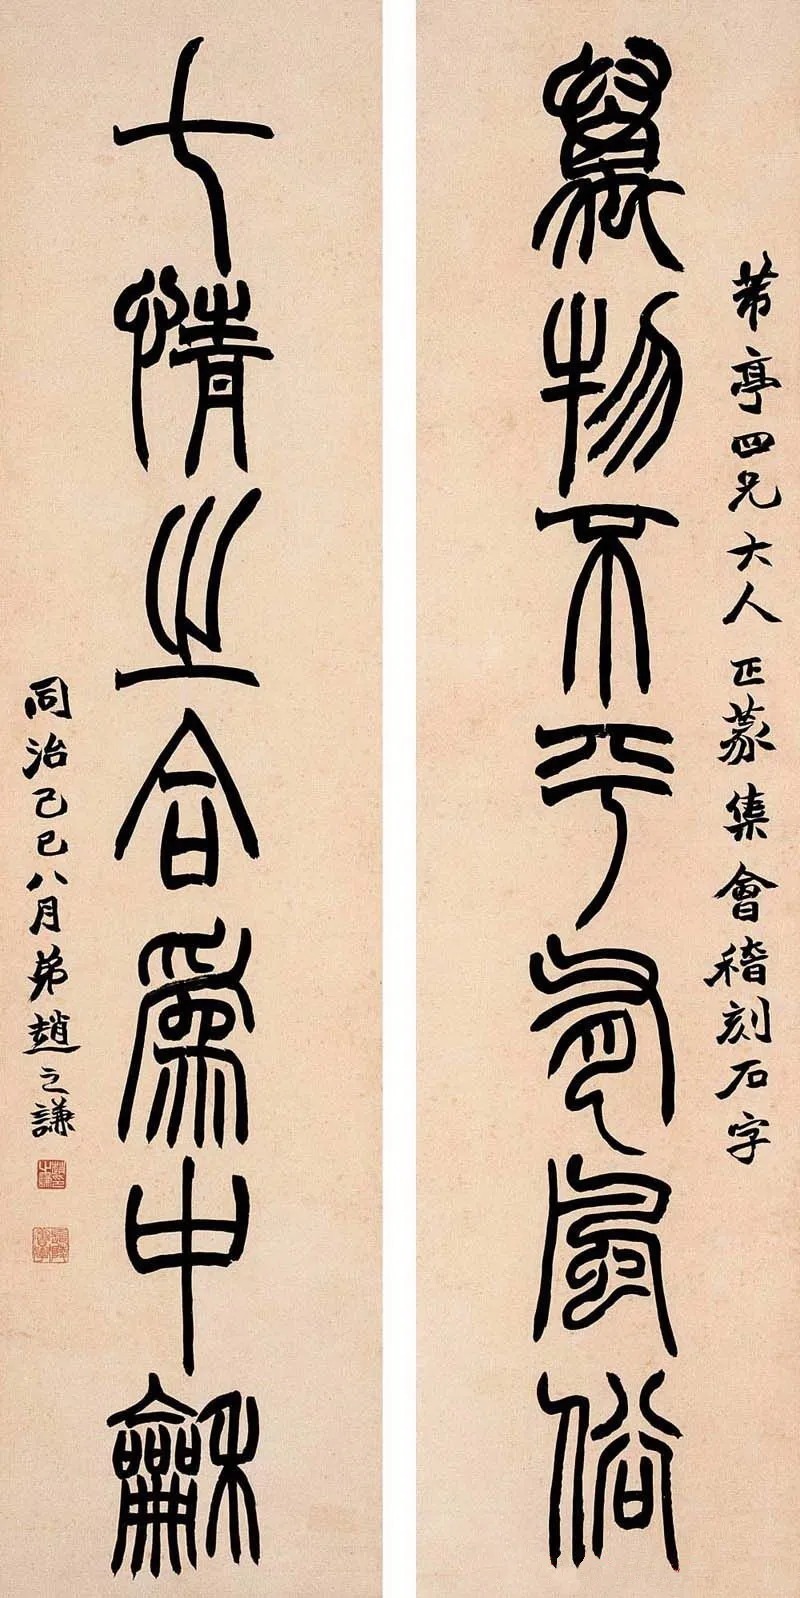 芾亭四兄大人正篆集會稽刻石字
萬物不平有風俗
七情之合為中龢
同治己巳八月弟趙之謙